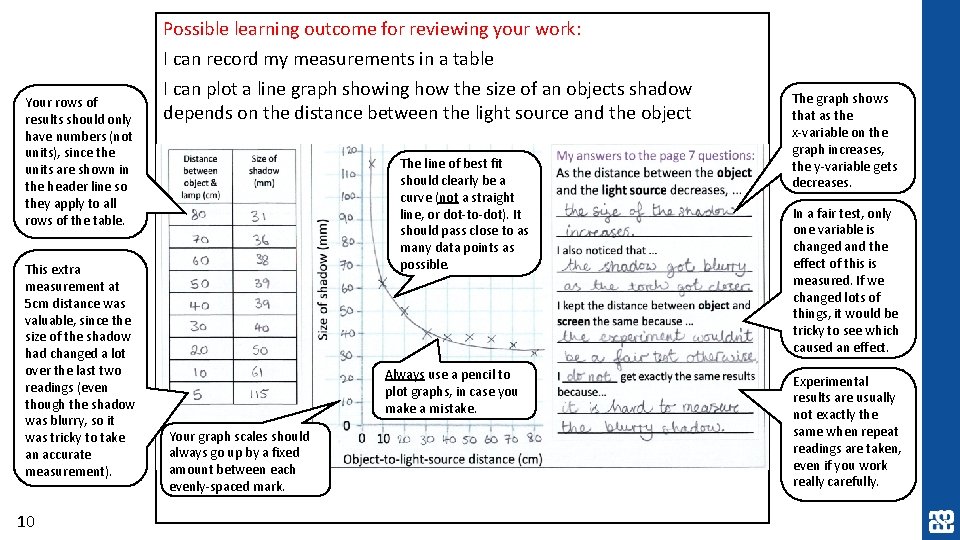 Possible learning outcome for reviewing your work:
I can record my measurements in a table
I can plot a line graph showing how the size of an objects shadow
depends on the distance between the light source and the object
Your rows of
results should only
have numbers (not
units), since the
units are shown in
the header line so
they apply to all
rows of the table.
This extra
measurement at
5cm distance was
valuable, since the
size of the shadow
had changed a lot
over the last two
readings (even
though the shadow
was blurry, so it
was tricky to take
an accurate
measurement).
Distance between object & lamp (cm) Size of shadow (mm)
80 31
70 36
60 38
50 39
40 39
30 40
20 50
10 61
5 115
Your graph scales should
always go up by a fixed
amount between each
evenly-spaced mark.
Size of shadow (mm)
120
110
100
90
80
70
60
50
40
30
20
10
0
0 10 20 30 40 50 60 70 80
Object-to-light-source distance (cm)
The line of best fit
should clearly be a
curve (not a straight
line, or dot-to-dot). It
should pass close to as
many data points as
possible.
Always use a pencil to
plot graphs, in case you
make a mistake.
My answers to the page 7 questions:
As the distance between the object
and the light source decreases, ...
the size of the shadow
increases
I also noticed that ...
the shadow got blurry
as the torch got closer
I kept the distance between object and
screen the same because ...
the experiment wouldn't
be a fair test otherwise
I do not get exactly the same results
because...
it is hard to measure
the blurry shadow
The graph shows
that as the
x-variable on the
graph increases,
the y-variable gets
decreases.
In a fair test, only
one variable is
changed and the
effect of this is
measured. If we
changed lots of
things, it would be
tricky to see which
caused an effect.
Experimental
results are usually
not exactly the
same when repeat
readings are taken,
even if you work
really carefully.
10